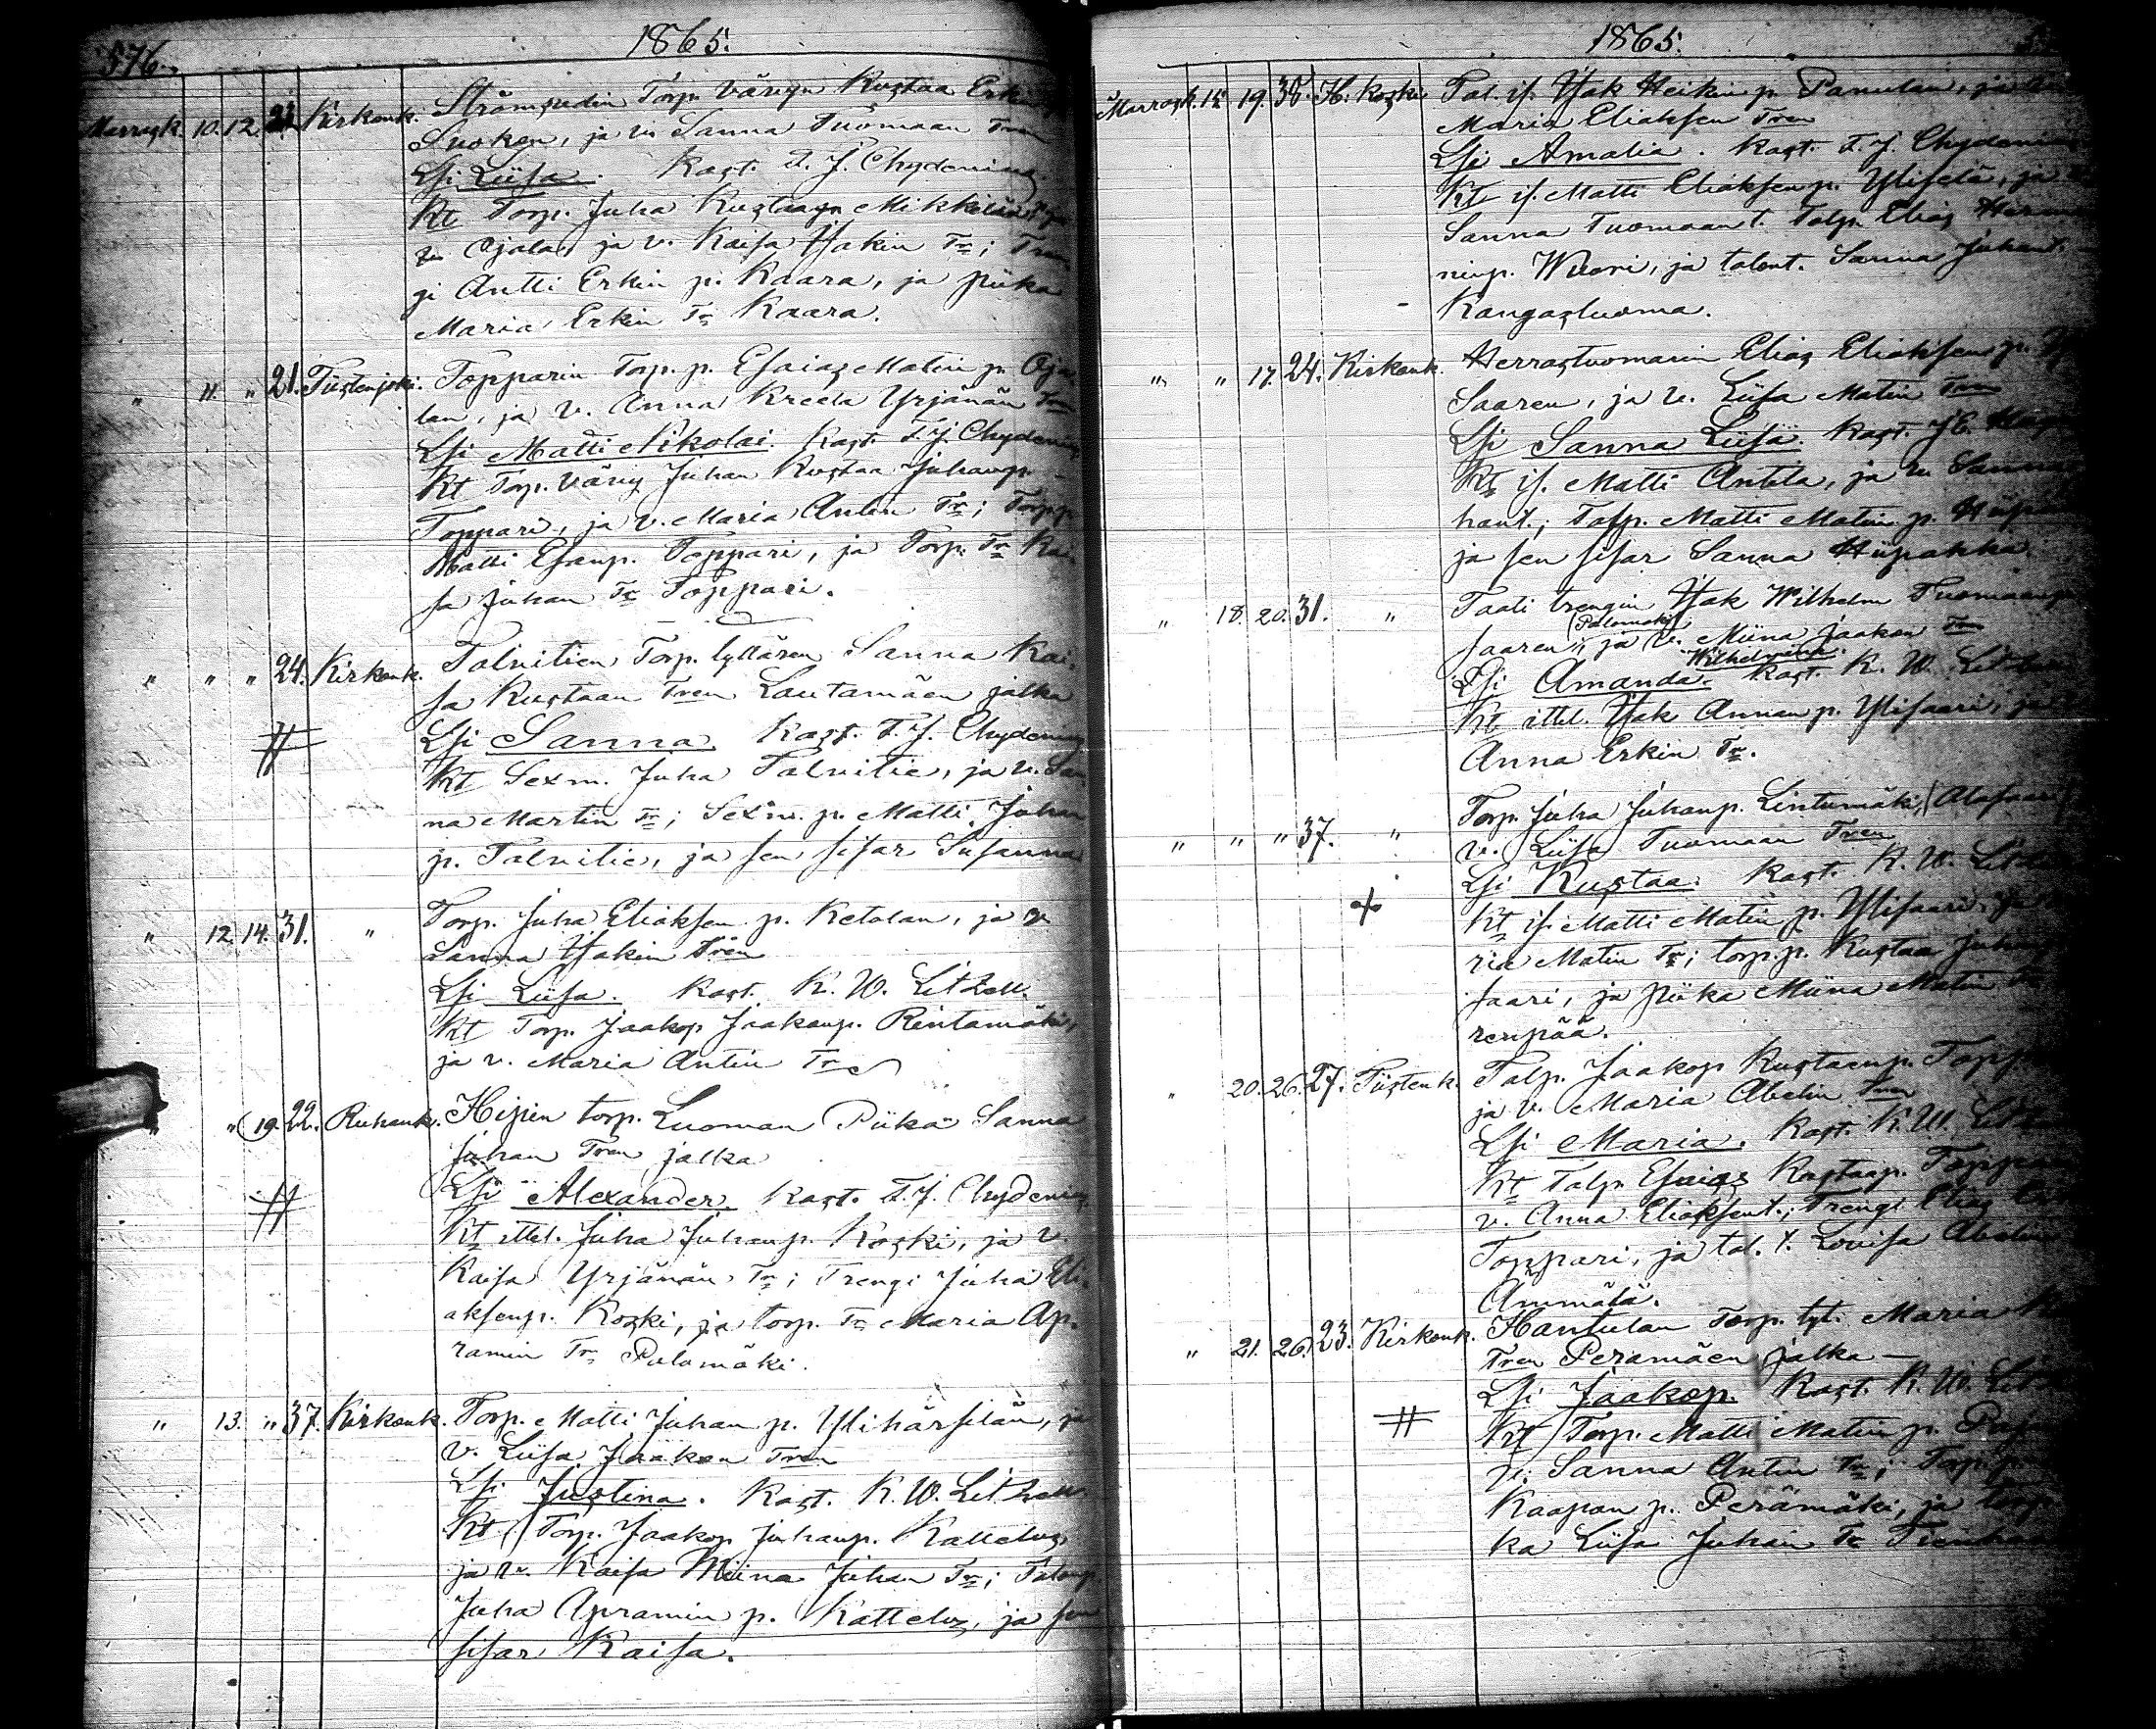 576.
1865.
Marrask. 10. 12. 23. Kirkonk. Strömstedin Torp. Värin Kustaa Erkin
Luoken, ja v. Sanna Tuomaan Tren
Lsi Liisa. Kast. F. J. Chydenius
Kt Torp. Juha Kustaan Mikkilä
Ojala, ja v. Kaisa Isakin Tr; Tren
gi Antti Erkin p. Kaara, ja piika
Maria Erkin Tr Kaara.
" 11. " 21. Tiistenjoki. Topparin Torp. p. Esaias Matin p. Oja
lan, ja v. Anna Kreeta Yrjänän Tren
Lsi Matti Nikolai. Kast. F. J. Chydenius
Kt Torp. Värin Juhan Kustaa Juhanp.
Toppari, ja v. Maria Antin Tr; Torp. p.
Matti Esanp. Toppari, ja Torp. Tr Kai
sa Juhan Tr Toppari.
" " " 24. Kirkonk. Talvitien Torp. tyttären Sanna Kai
sa Kustaan Tren Lautamäen jalka
Lsi Sanna. Kast. F. J. Chydenius
Kt Sexm. Juha Talvitie, ja v. San
na Martin Tr; Sexm. p. Matti Juhan
p. Talvitie, ja sen sisar Susanna
" 12. 14. 31. " Torp. Juha Eliaksen p. Ketolan, ja v.
Sanna Isakin Tren
Lsi Liisa. Kast. K. W. Litzen.
Kt Torp. Jaakop Jaakonp. Rintamäki,
ja v. Maria Antin Tr
" " 19. 22. Ruhank. Hipin torp. Luoman Piika Sanna
Juhan Tren jalka
Lsi Alexander. Kast. F. J. Chydenius.
Kt ittel. Juha Juhanp. Koski, ja v.
Kaisa Yrjänän Tr; Trengi Juha Eli
aksenp. Koski, ja torp. Tr Maria Ap
ramin Tr Palomäki.
" 13. " 37. Kirkonk. Torp. Matti Juhan p. Ylihärsilän, ja
v. Liisa Jaakon Tren
Lsi Justina. Kast. K. W. Litzen
Kt Torp. Jaakop Juhanp. Kattelus
ja v. Kaisa Miina Juhan Tr; Talonp.
Juha Apramin p. Kattelus, ja sen
sisar Kaisa.
1865.
Marrask. 15. 19. 38. H. Koski Tal. is. Isak Heikin p. Panulan, ja
Maria Eliaksen Tren
Lsi Amalia. Kast. F. J. Chydenius
Kt is. Matti Eliaksen p. Ylisetä, ja
Sanna Tuomaan t. Talp. Elias Herman
ninp. Wuori, ja talont. Sanna Juhant.
Kangasluoma.
" " 17. 24. Kirkonk. Herrastuomarin Elias Eliaksen p.
Saaren, ja v. Liisa Matin Tren
Lsi Sanna Liisa. Kast.
Kt is. Matti Antila, ja v. Sanna
hant.; Talp. Matti Matin p. Hiipakka
ja sen sisar Sanna Hiipakka.
" 18. 20. 31. " Taali trengin Isak Wilhelm Tuomaan p.
(Palomäki)
saaren, ja v. Miina Jaakon Tren
Wilhelmina.
Lsi Amanda. Kast. K. W. Litzen
Kt ittel. Isak Annan p. Ylisaari, ja
Anna Erkin Tr.
" " " 37. " Torp. Juha Juhanp. Lintumäki, (Alasaari)
v. Liisa Tuomaan Tren
Lsi Kustaa. Kast. K. W. Litzen
Kt is. Matti Matin p. Ylisaari, ja
ria Matin Tr; torp. p. Kustaa Juhanp.
saari, ja piika Miina Matin Tr
renpää.
" 20. 26. 27. Tiistenk. Talp. Jaakop Kustaanp. Toppari
ja v. Maria Abelin Tren
Lsi Maria. Kast. K. W. Litzen
Kt Talp. Esaias Kustaap. Toppari
v. Anna Eliaksent.; Trengi Elias
Toppari, ja tal. t. Lovisa Abelin
Ämmälä.
" 21. 26. 23. Kirkonk. Hantulan Torp. tyt. Maria
Tren Perämäen jalka
Lsi Jaakop. Kast. K. W. Litzen
Kt Torp. Matti Matin p.
v. Sanna Antin Tr; Torp. p.
Kaapon p. Perämäki, ja torp.
ka Liisa Juhan Tr